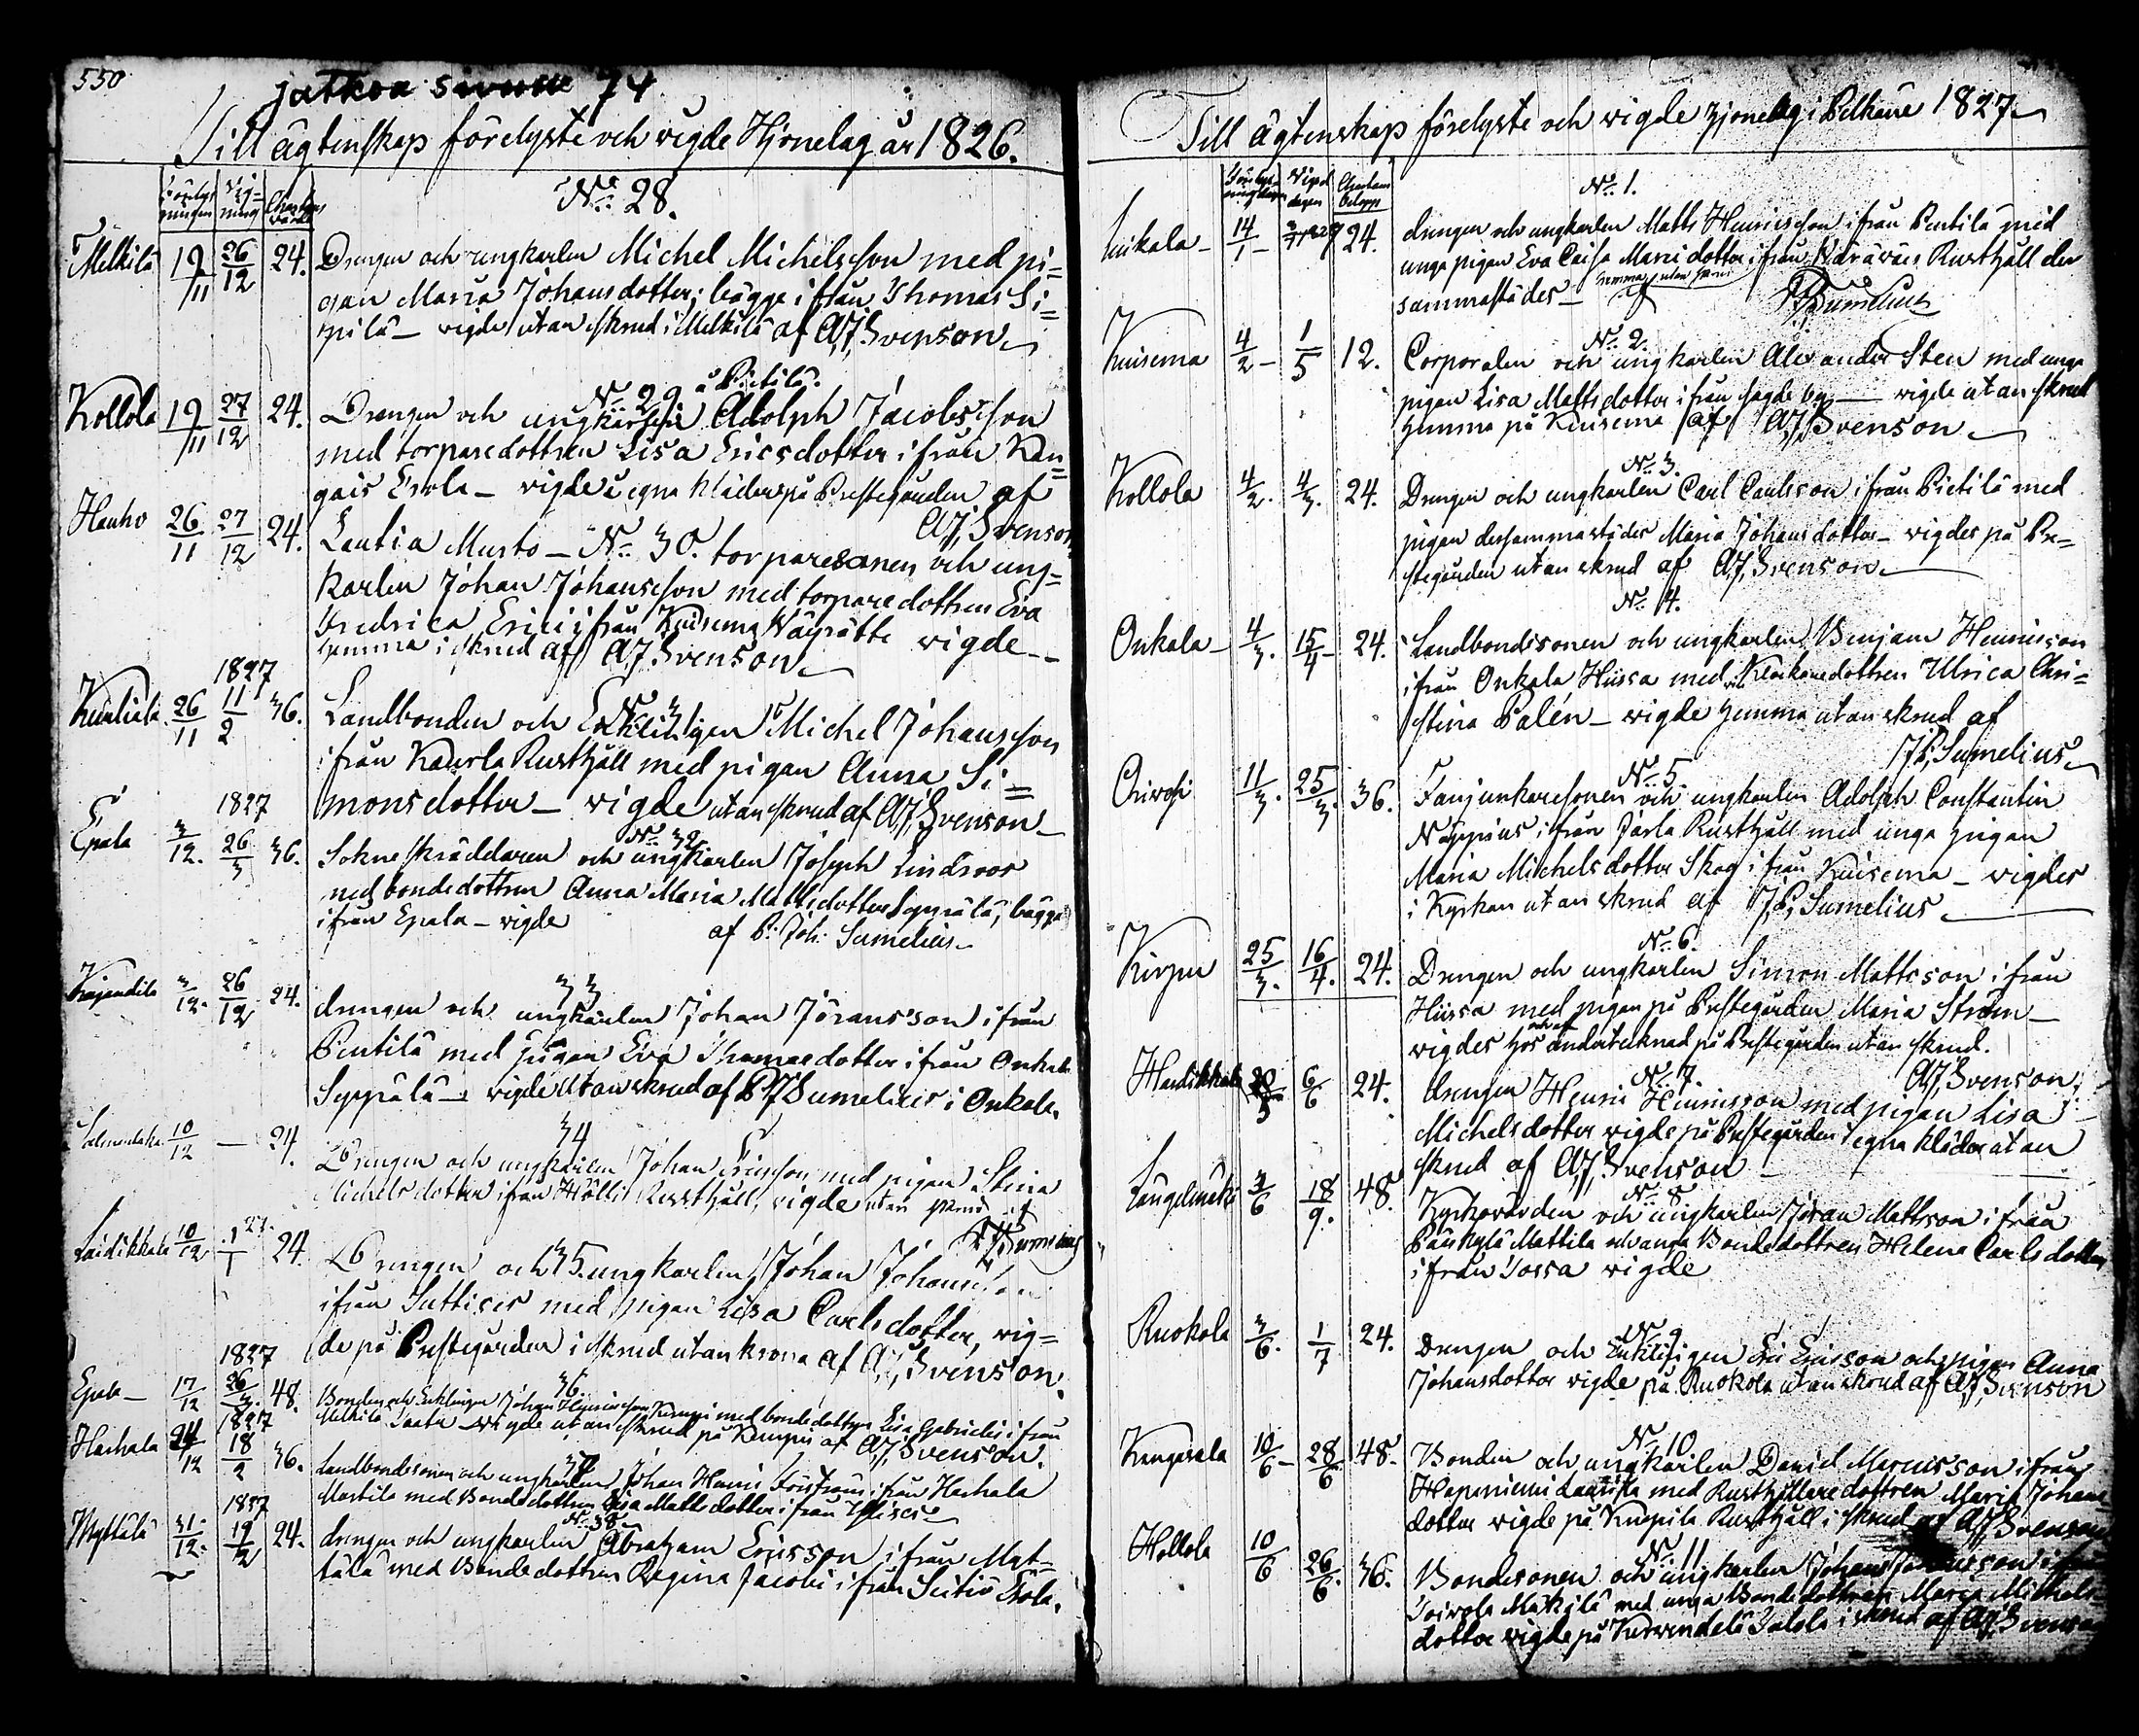 550
jatkoa sivulle 74
Till ägtenskap förelyste och wigde Hjonelag år 1826.
No 28.
Melkilä 19/11 26/12 24. Drengen och ungkarlen Michel Michelsson med pi=
gan Maria Johansdotter; bägge ifrån Thomas Si=
pilä – wigde utan skrud i Melkilä af A.J. Svenson
No 29. å Pietilä.
Kollola 19/11 27/12 24. Drengen och ungkarlen Adolph Jacobsson
med torparedottren Lisa Ericsdotter ifrån Kan=
gais Erola – wigde i egna kläder på Prestegården af
A.J. Svenson
Hauho 26/11 27/12 24. Lautia Musto – No 30. torparesonen och ung=
karlen Johan Johansson med torparedottren Eva
Fredrica Erici ifrån Kuisema Wäyrätte wigde –
hemma i skrud af A.J. Svenson
1827
No 31
26/11 11/2 36. Landbonden och Enklingen Michel Johansson
ifrån Kaurla Rusthåll med pigan Anna Si=
monsdotter – wigde utan skrud af A.J. Svenson
1827
No 32.
Epala 3/12. 26/3 36. Sokneskräddaren och ungkarlen Joseph Lindroos
med bondedottren Anna Maria Mattsdotter Seppälä, bägge
ifrån Epala – wigde af P. Joh. Sumelius
33
3/12. 26/12 24. drengen och ungkarlen Johan Jöransson ifrån
Pentilä med pigan Eva Thomasdotter ifrån Onkala
Seppälä – wigde utan skrud af P J Sumelius i Onkala.
34
10/12 – 24. Drengen och ungkarlen Johan Ericsson med pigan Stina
Michelsdotter ifrån Hölli Rusthåll, wigde utan skrud af
P J Sumelius
Laidikkala 10/12 1/1 27. 24. Drengen och 35. ungkarlen Johan Johansson
ifrån Suttises med pigan Lisa Carlsdotter, wig=
de på Prestegården i skrud utan krona af A.J. Svenson.
1827
36.
Epala – 17/12 26/3. 48. Bonden och Enklingen Johan Henricsson Kemppi med bondedottren Lisa Gabrielis ifrån
Melkilä – wigde utan skrud på Kemppis af A.J. Svenson.
1827
37
Hachala 24/12 18/2 36. Landbondesonen och ungkarlen Johan Henric ifrån Hachala
Marttila med Bondedottren Lisa Mattsdotter ifrån
1827
No 38
Myttälä 31/12. 19/2 24. drengen och ungkarlen Abraham Ericsson ifrån Myt=
tälä med Bondedottren Regina Jacobi ifrån Erola.
Till ägtenskap förelyste och wigde hjonelag i Pelkäne 1827
No 1.
14/1 – 24. drengen och ungkarlen Matts Henricsson ifrån Pentilä med
unga pigan Eva Caisa Mariedotter ifrån Rusthåll der
sammastädes – hemma utan skrud af P J Sumelius
No 2.
Kuisema 4/2 – 1/5 12. Corporalen och ungkarlen Alexander Sten med unga
pigan Lisa Mattsdotter ifrån sagde by – wigde utan skrud
hemma på Kuisema af A.J. Svenson
No 3.
Kollola 4/2. 4/3. 24. Drengen och ungkarlen Carl Carlsson ifrån Pietilä med
pigan dersammastädes Maria Johansdotter – wigdes på Pre=
stegården utan skrud af A.J. Svenson
No 4.
Onkala – 4/3. 15/4 – 24. Landbondesonen och ungkarlen Benjam Henricsson
ifrån Onkala Hiissa med Klockaredottren Ulrica Chri=
stina Palén – wigde hemma utan skrud af
P J Sumelius
No 5.
11/3. 25/3. 36. Fanjunkaresonen och ungkarlen Adolph Constantin
Näppius ifrån Jårla Rusthåll med unga pigan
Maria Michelsdotter Skog ifrån Kuisema – wigdes
i Kyrkan utan skrud af P J Sumelius
No 6.
Kirpu 25/3. 16/4. 24. Drengen och ungkarlen Simon Mattsson ifrån
Hiissa med pigan på Prestegården Maria Ström –
wigdes hos och af undertecknad på Prestegården utan skrud.
A.J. Svenson
No 7.
20/5 6/6 24. drengen Henric Henricsson med pigan Lisa
Michelsdotter wigde på Prestegården i egna kläder utan
skrud af A.J. Svenson
No 8
Längelmäki 3/6 18/9. 48. Kyrkovärden och ungkarlen Jöran Mattsson ifrån
Mattila och unga Bondedottren Helena Carlsdotter
ifrån Sossa wigde
No 9
Ruokola 3/6. 1/7 24. Drengen och Enklingen Eric Ericsson och pigan Anna
Johansdotter wigde på Ruokola utan skrud af A.J. Svenson
No 10
Kangasala 10/6 – 28/6 48. Bonden och ungkarlen Daniel Marcusson ifrån
Haponiemi Lautila med Rusthållaredottren Maria Johans
dotter wigde på Kuppila Rusthåll i skrud af A.J. Svenson
No 11
Hollola 10/6 26/6. 36. Bondesonen och ungkarlen Johan ifrån
Toivola Mäkilä med unga Bondedottren Maria Michels=
dotter wigde på i skrud af A.J. Svenson